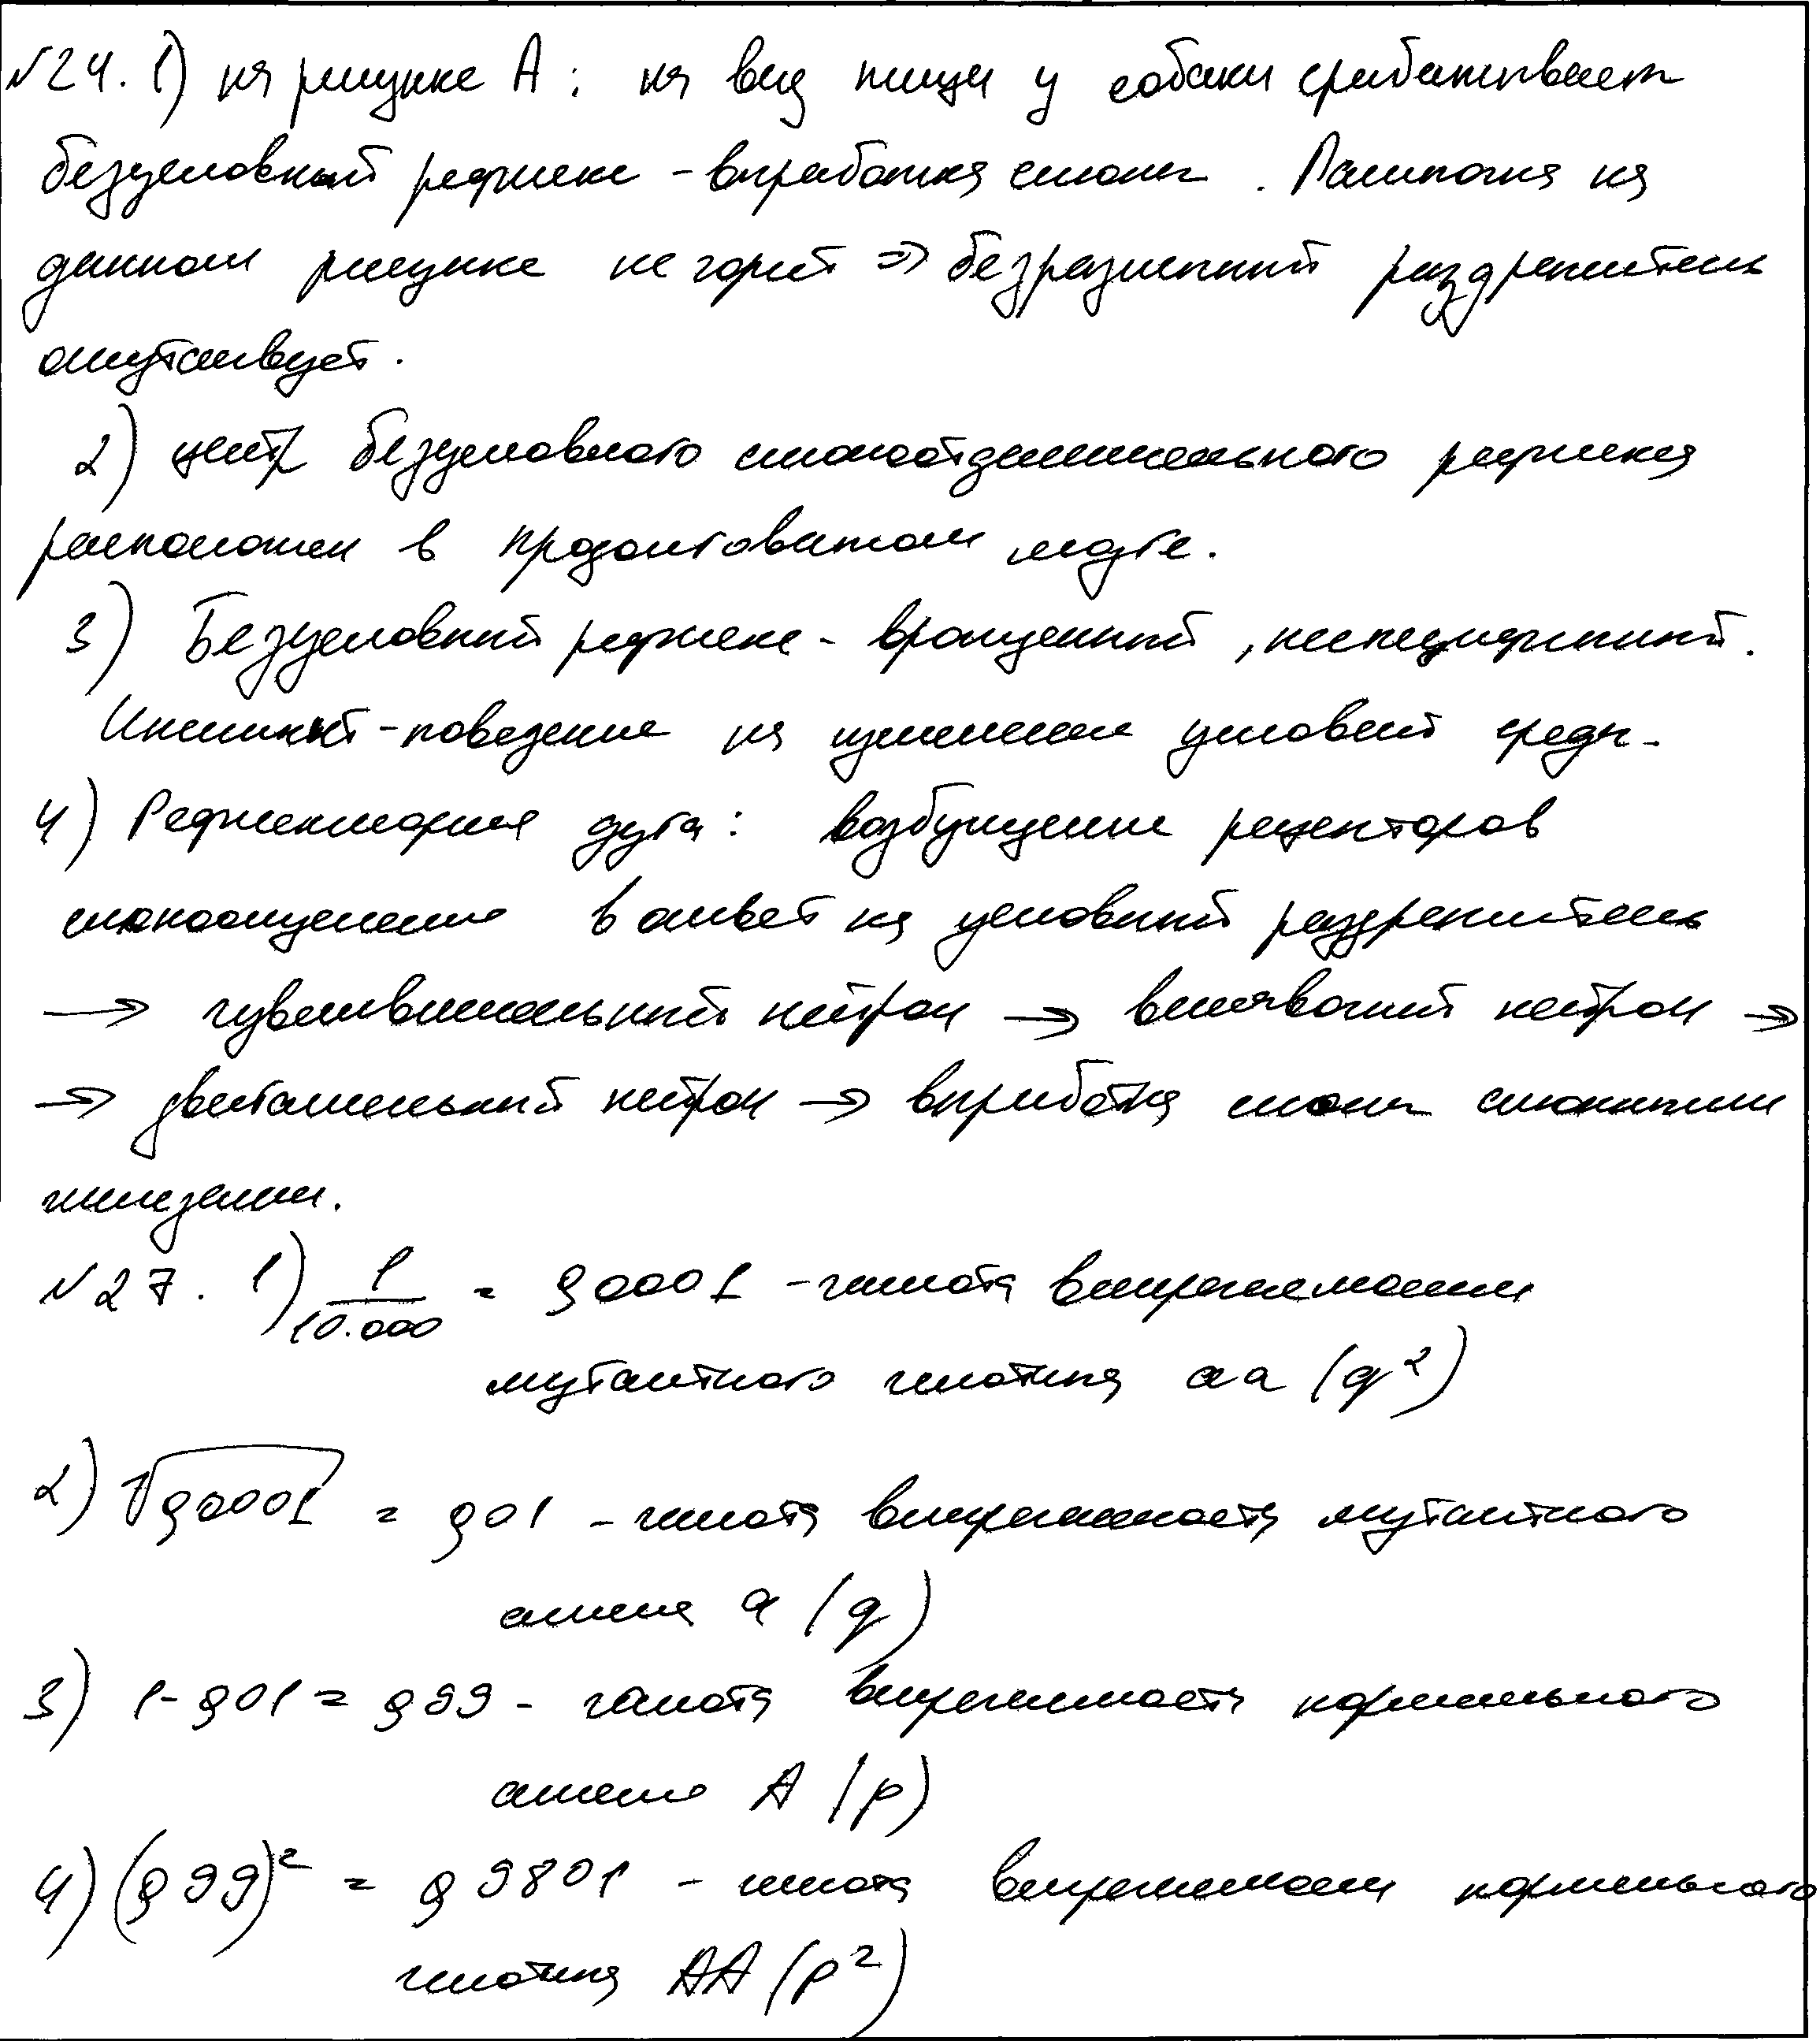 №24. 1) на рисунке А: на вид пищи у собаки срабатывает
безусловный рефлекс - выработка слюны. Лампочка на
данном рисунке не горит => безразличный раздражитель
отсутствует.
2) центр безусловного слюноотделительного рефлекса
расположен в продолговатом мозге.
3) Безусловный рефлекс - врожденный, неспецифичный.
Инстинкт - поведение на изменение условий среды.
4) Рефлекторная дуга: возбуждение рецепторов
в ответ на условный раздражитель
→ чувствительный нейрон → вставочный нейрон →
→ двигательный нейрон → выработка слюны слюнными
железами.
№27. 1) 1/10.000 = 0,0001 - частота встречаемости
мутантного генотипа aa (q²)
2) √0,0001 = 0,01 - частота встречаемость мутантного
аллеля a (q)
3) 1-0,01 = 0,99 - частота встречаемость нормального
аллеля A (p)
4) (0,99)² = 0,9801 - частота встречаемости нормального
генотипа AA (p²)